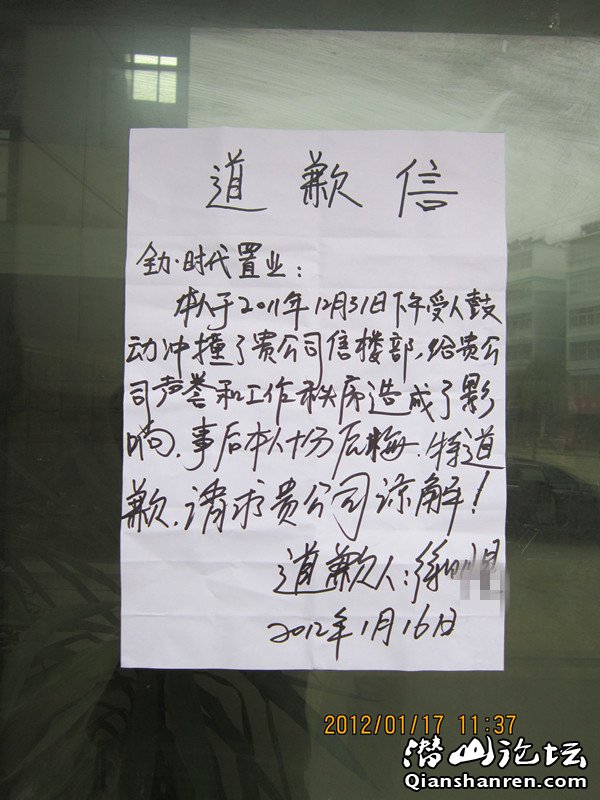 道歉信
全力·时代置业：
本人于2011年12月31日下午受人鼓
动冲撞了贵公司售楼部，给贵公
司声誉和工作秩序造成了影
响，事后本人十分后悔，特道
歉，请求贵公司谅解！
道歉人：徐
2012年1月16日
2012/01/17 11:37
潜山论坛
Qianshanren.com